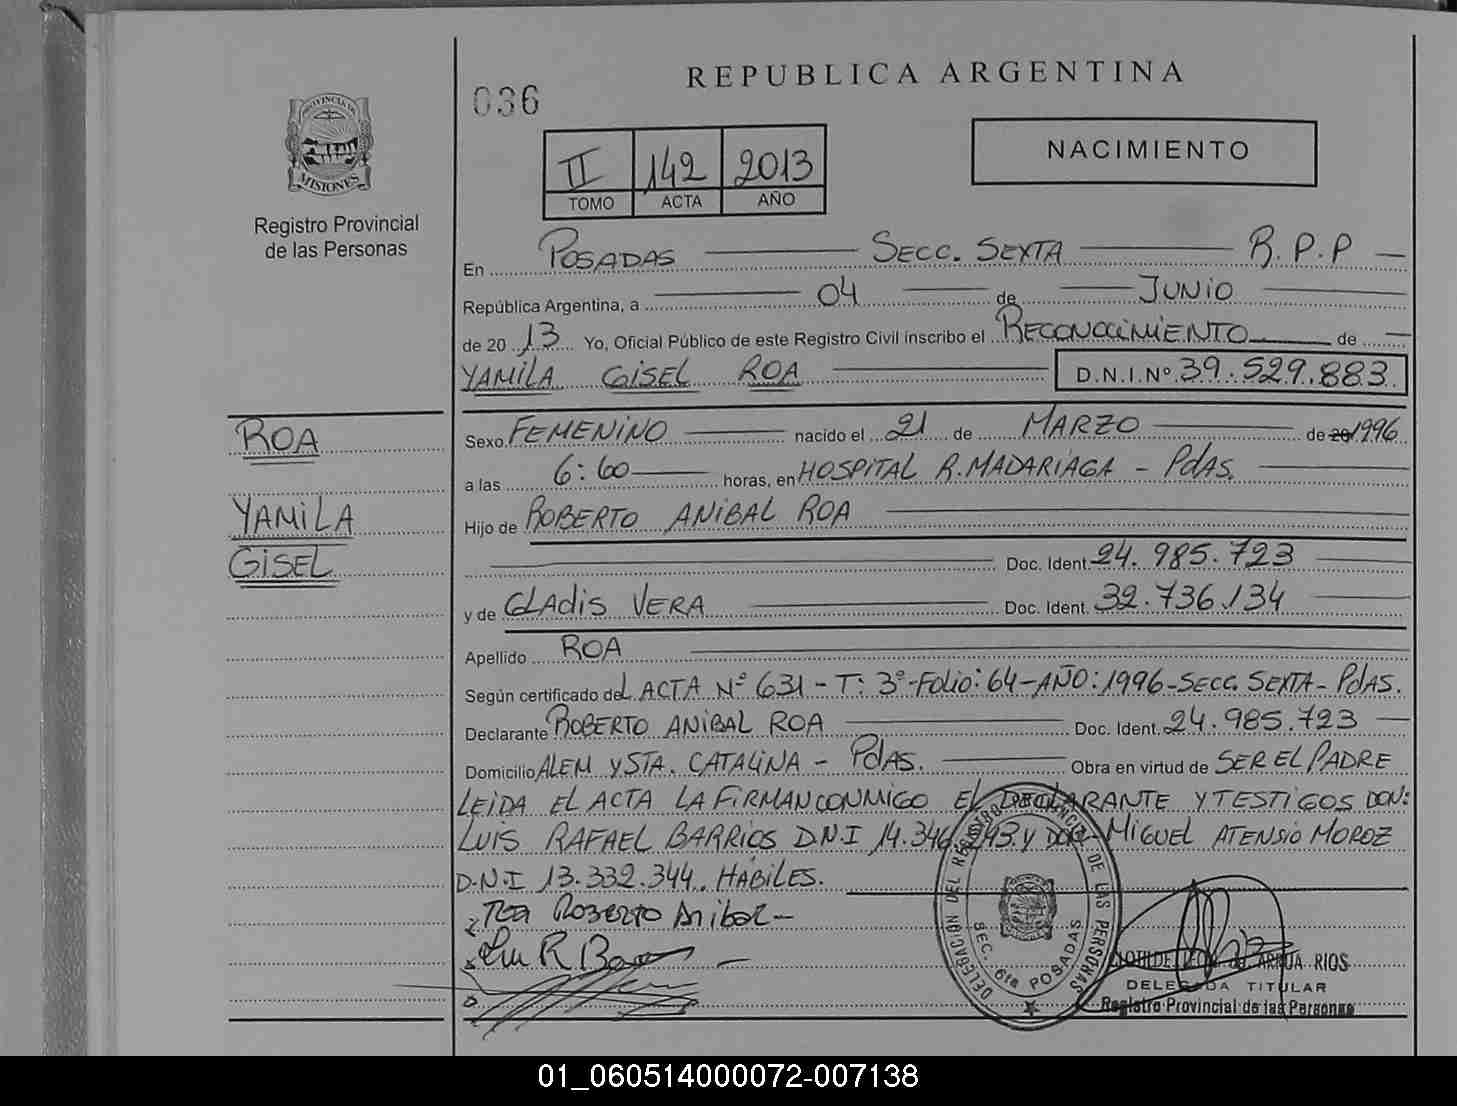 REPUBLICA ARGENTINA
036
NACIMIENTO
II 142 2013
TOMO ACTA AÑO
PROVINCIA DE
MISIONES
Registro Provincial
de las Personas
En POSADAS SECC. SEXTA R.P.P
República Argentina, a 04 de JUNIO
de 20 13 Yo, Oficial Público de este Registro Civil inscribo el RECONOCIMIENTO de
YAMILA GISEL ROA D.N.I.Nº 39.529.883
ROA
YAMILA
GISEL
Sexo FEMENINO nacido el 21 de MARZO de 20 1996
a las 6:00 horas, en HOSPITAL R. MADARIAGA - PdAS.
Hijo de ROBERTO ANIBAL ROA
Doc. Ident. 24.985.723
y de GLAdiS VERA Doc. Ident. 32.736.134
Apellido ROA
Según certificado del ACTA Nº 631 - T: 3º - FOLIO: 64 - AÑO: 1996 - SECC. SEXTA - PdAS.
Declarante ROBERTO ANIBAL ROA Doc. Ident. 24.985.723
Domicilio ALEM Y STA. CATALINA - PdAS. Obra en virtud de SER EL PADRE
LEIDA EL ACTA LA FIRMAN CONMIGO EL DECLARANTE Y TESTIGOS DON:
LUIS RAFAEL BARRIOS D.N.I 14.346.243 y DON MIGUEL ATENSIO MOROZ
D.N.I 13.332.344. HABILES.
Roa Roberto Anibal
DELEGACION DEL REGISTRO PROVINCIAL DE LAS PERSONAS
SEC. 6ta POSADAS
ARRUA RIOS
DELEGADA TITULAR
Registro Provincial de las Personas
01_060514000072-007138